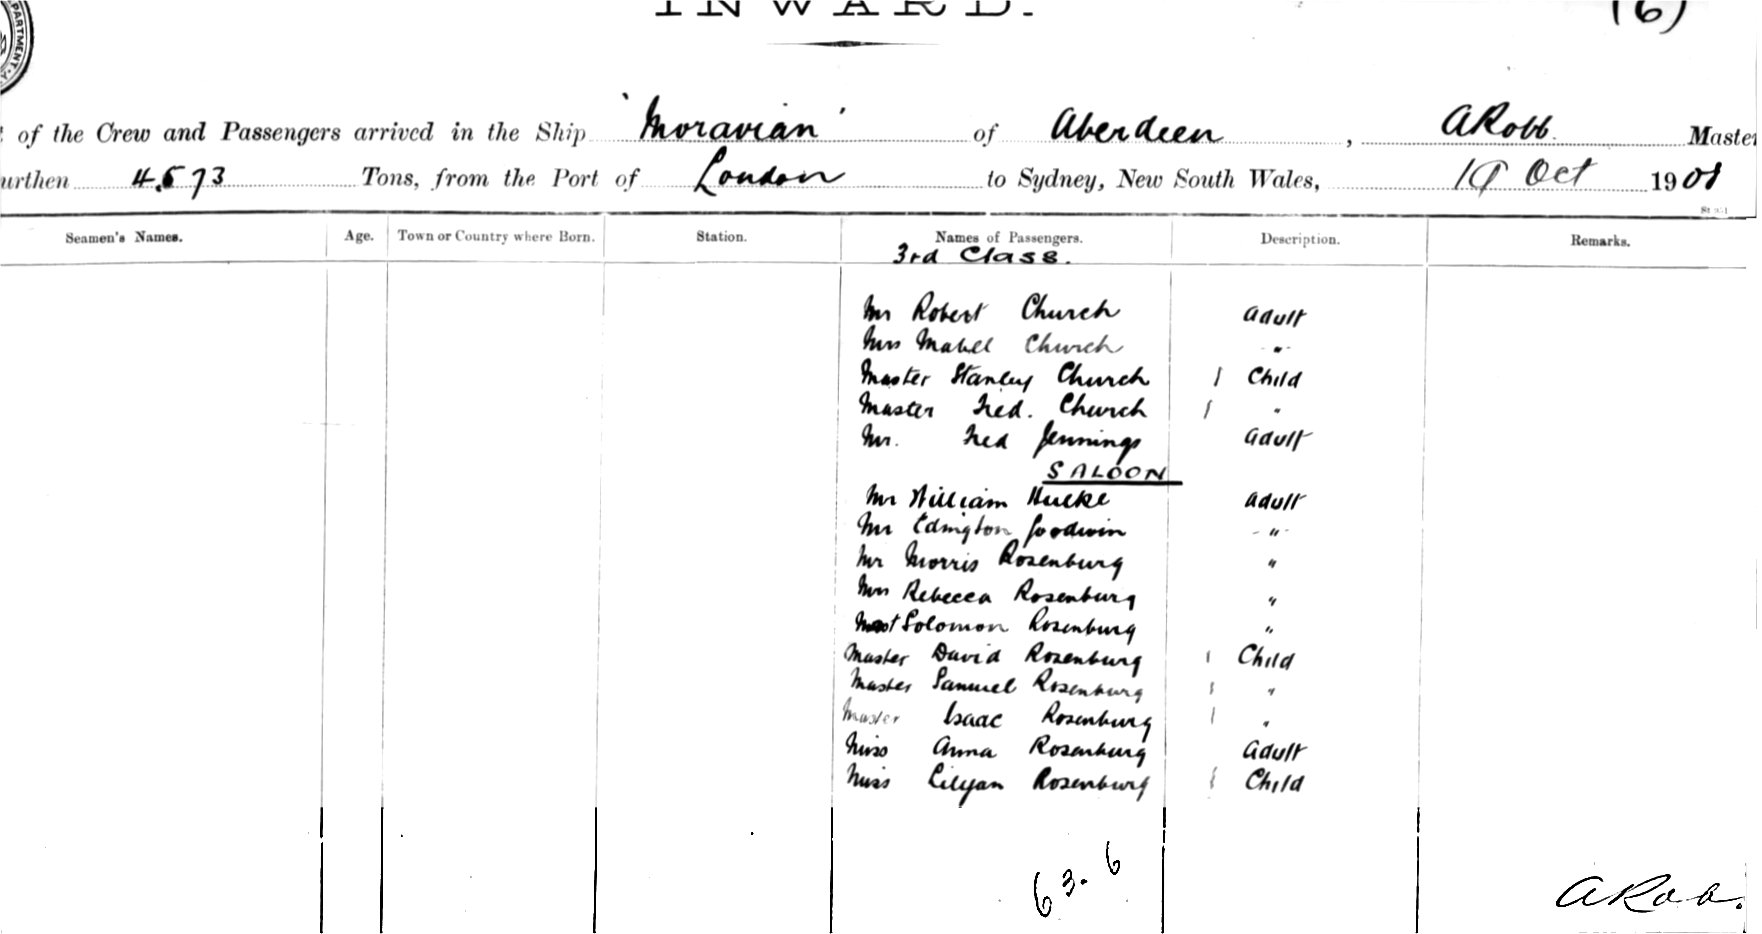 INWARD.
(6)
PARTMENT
of the Crew and Passengers arrived in the Ship 'Moravian' of Aberdeen, A Robb. Master
urthen 4,573 Tons, from the Port of London to Sydney, New South Wales, 19 Oct 1901
Seamen's Names. Age. Town or Country where Born. Station. Names of Passengers. Description. Remarks.
3rd Class.
Mr Robert Church Adult
Mrs Mabel Church "
Master Stanley Church 1 Child
Master Fred. Church 1 "
Mr. Fred Jennings Adult
SALOON
Mr William Hucke Adult
Mr Edington Goodwin "
Mr Morris Rosenburg "
Mrs Rebecca Rosenburg "
Mast Solomon Rosenburg "
Master David Rosenburg 1 Child
Master Samuel Rosenburg 1 "
Master Isaac Rosenburg 1 "
Miss Anna Rosenburg Adult
Miss Lilyan Rosenburg 1 Child
63. 6
A Robb.